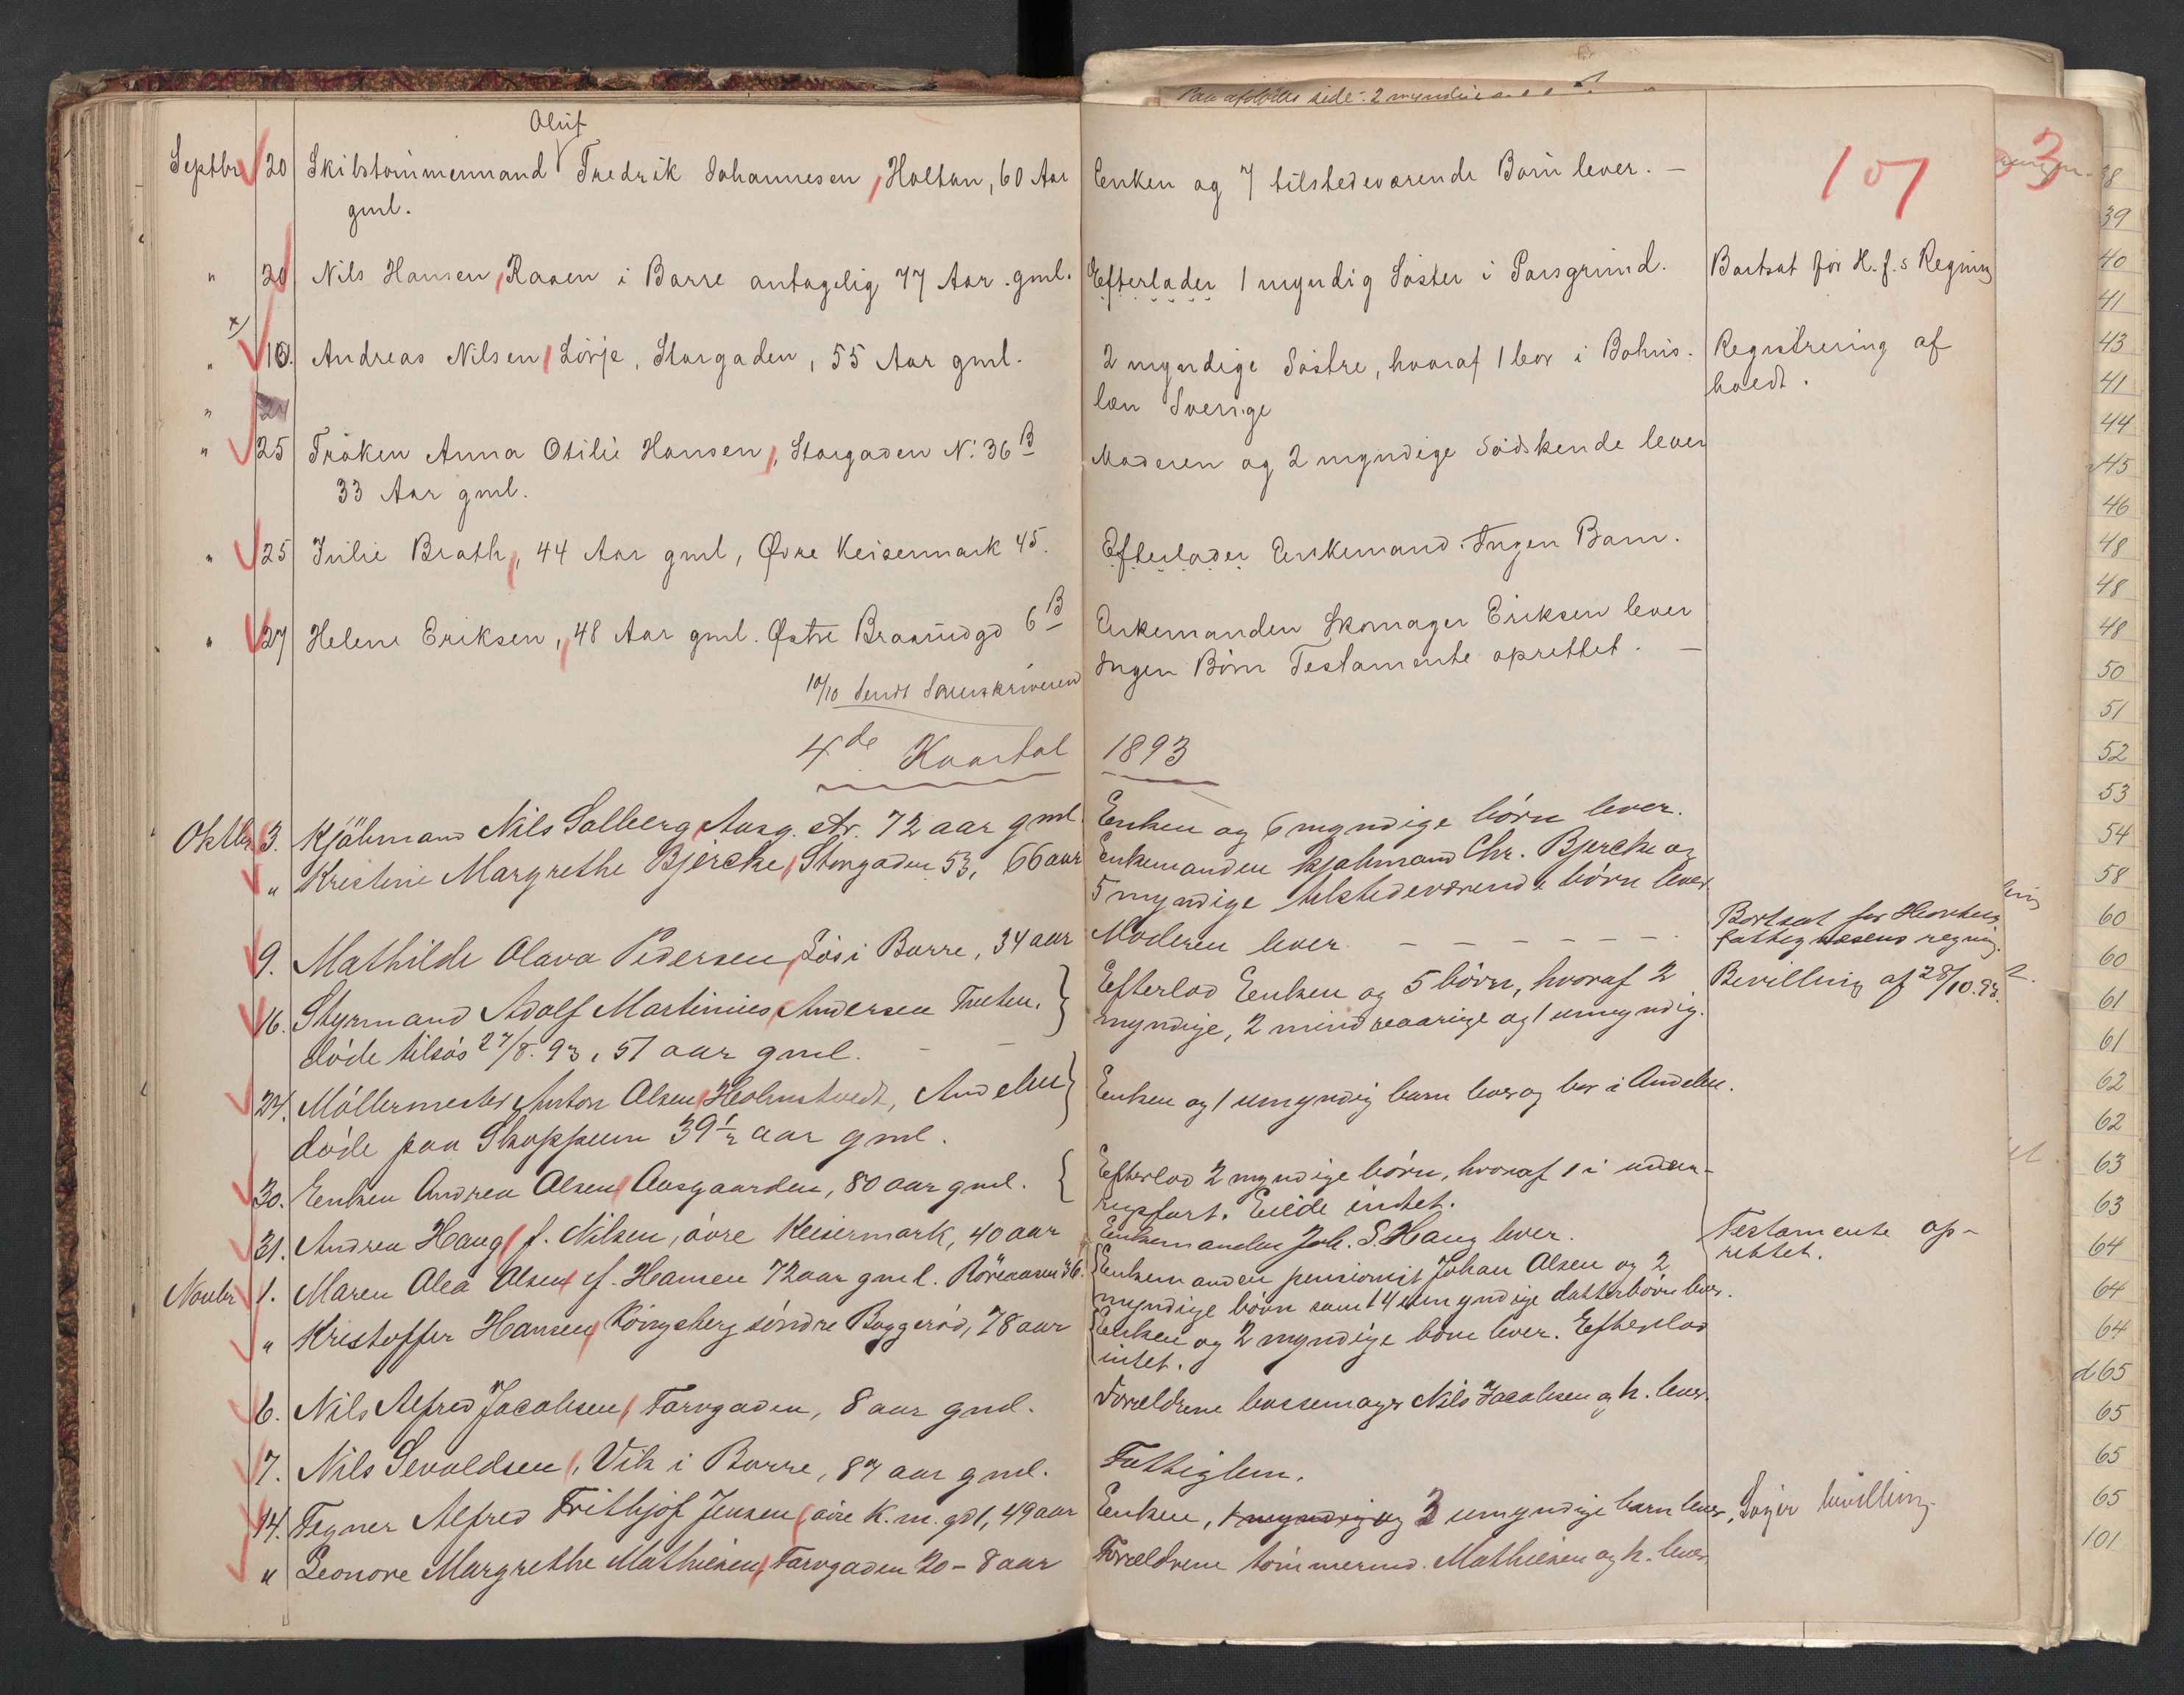 Oluf
Septbr 20 Skibstømmermand Fredrik Johannesen, Holtan, 60 Aar Enken og 7 tilstedeværende Børn lever. — 107
gml.
" 20 Nils Hansen, Raaen i Borre antagelig 77 Aar. gml. Efterlader 1 myndig Søster i Porsgrund. Bortsat for H. f.s Regning
" 10. Andreas Nilsen, Lørje, Storgaden, 55 Aar gml. 2 myndige Søstre, hvoraf 1 bor i Bohus- Registrering af
læn Sverige holdt.
" 25 Frøken Anna Otilie Hansen, Storgaden N: 36 B Moderen og 2 myndige Sødskende lever
33 Aar gml.
" 25 Julie Brath, 44 Aar gml, Øvre Keisermark 45. Efterlader Enkemand. Ingen Barn.
" 27 Helene Eriksen, 48 Aar gml. Østre Braanedgd 6 B Enkemanden Skomager Eriksen lever
Ingen Børn Testamente oprettet. —
10/10 Sendt Sorenskriveren
4de Kvartal 1893
Oktbr 3. Kjøbmand Nils Solberg, Aasg. str. 72 aar gml. Enken og 6 myndige børn lever.
" Kristine Margrethe Bjercke, Storgaden 53, 66 aar Enkemanden kjøbmand Chr. Bjercke og
5 myndige tilstedeværende børn lever
9. Mathilde Olava Pedersen, Løs i Borre, 34 aar Moderen lever — — — — — — Bortsat for Hortens
fattigvæsens regning.
16. Styrmand Adolf Martinius Andersen Tveten. Efterlod Enken og 5 børn, hvoraf 2 Bevilling af 28/10.93.
døde tilsøs 27/8.93, 51 aar gml. — — myndige, 2 mindreaarige og 1 umyndig.
24. Møllermester Anton Olsen, Holmstvedt, Andebu Enken og 1 umyndig barn lever og bor i Andebu.
døde paa Skoppum 39½ aar gml.
30. Enken Andrea Olsen, Aasgaarden, 80 aar gml. Efterlod 2 myndige børn, hvoraf 1 i uden-
rigsfart. Eiede intet.
31. Andrea Haug, f. Nilsen, øvre Keisermark, 40 aar Enkemanden Joh. S. Haug lever. Testamente op-
rettet.
Novbr 1. Maren Olea Olsen f. Hansen 72 aar gml. Røreaasen 36. Enkemanden pensionist Johan Olsen og 2
myndige børn samt 4 umyndige datterbørn lever.
" Kristoffer Hansen, Kongsberg søndre Baggerød, 78 aar Enken og 2 myndige børn lever. Efterlod
intet.
6. Nils Alfred Jacobsen, Tarvgaden, 8 aar gml. Forældrene bøssemager Nils Jacobsen og h. lever.
7. Nils Sevaldsen, Vik i Borre, 87 aar gml. Fattiglem.
14. Tegner Alfred Frithjof Jensen, øvre K.m.gd 1, 49 aar Enken, 1 myndig og 3 umyndige barn lever, Søger bevilling
" Leonore Margrethe Mathiesen, Tarvgaden 20 - 8 aar Forældrene tømmermd. Mathiesen og h. lever
3
38
39
40
41
43
41
44
45
46
48
48
48
50
51
52
53
54
58
60
60
61
61
62
62
63
63
64
64
64
65
65
65
65
101